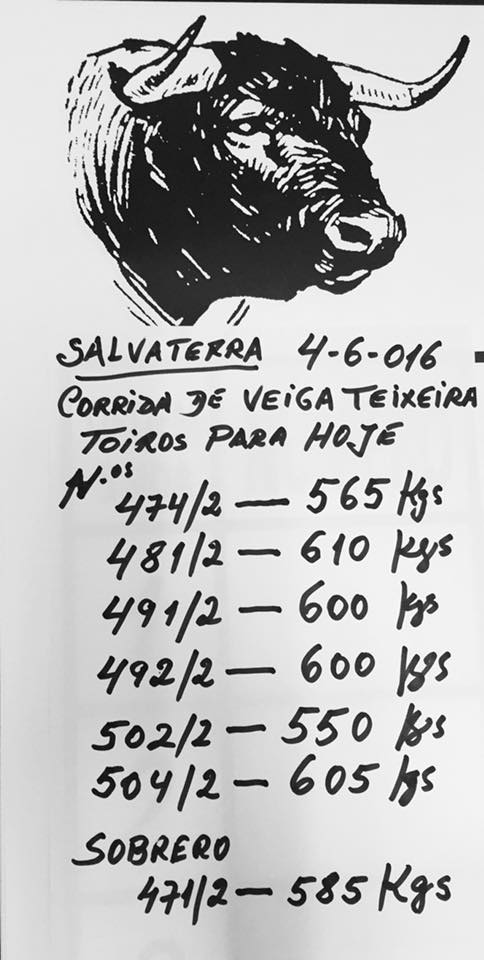 SALVATERRA 4-6-016
CORRIDA DE VEIGA TEIXEIRA
TOIROS PARA HOJE
N.os
474/2 — 565 Kgs
481/2 — 610 Kgs
491/2 — 600 Kgs
492/2 — 600 Kgs
502/2 — 550 Kgs
504/2 — 605 Kgs
SOBRERO
471/2 — 585 Kgs